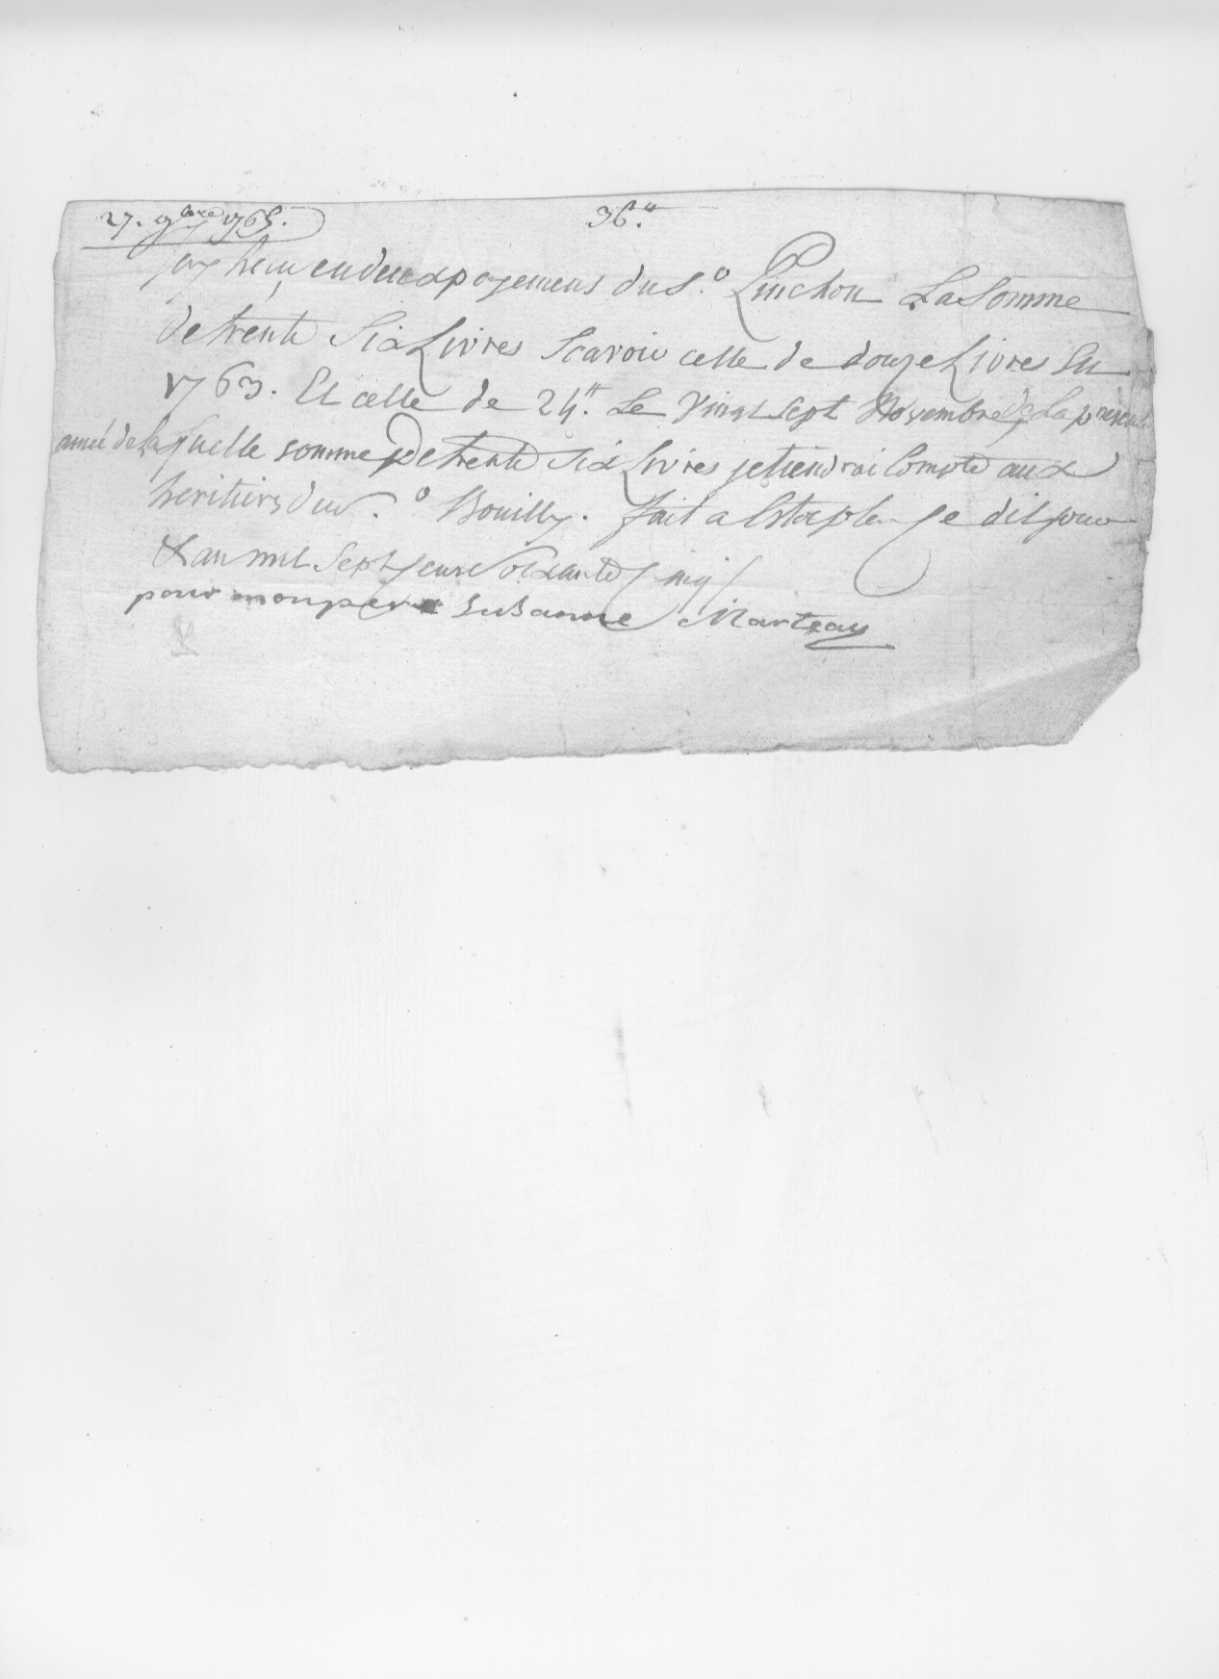 27. 9bre 1765. 36.ʰ
jay Recu en deux payemens du s.º Quichon La Somme
de trente Six Livres Scavoir celle de douze Livres En
1763. Et celle de 24.ʰ Le Vingt Sept Novembre de La presente
année de laquelle somme de trente Six Livres je tiendrai Compte aux
heritiers du s.º Bouilly. fait a Estaples Ce dit jour
& an mil Sept Cent Soixante Cinq
pour mon pere Susanne Marteau